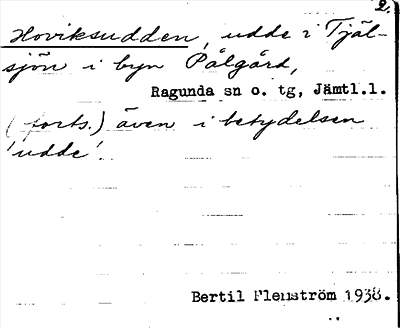 2.
Hoviksudden, udde i Tjäl-
sjön i byn Pålgård,
Ragunda sn o. tg, Jämtl.l.
(forts.) även i betydelsen
'udde'.
Bertil Flemström 1938.